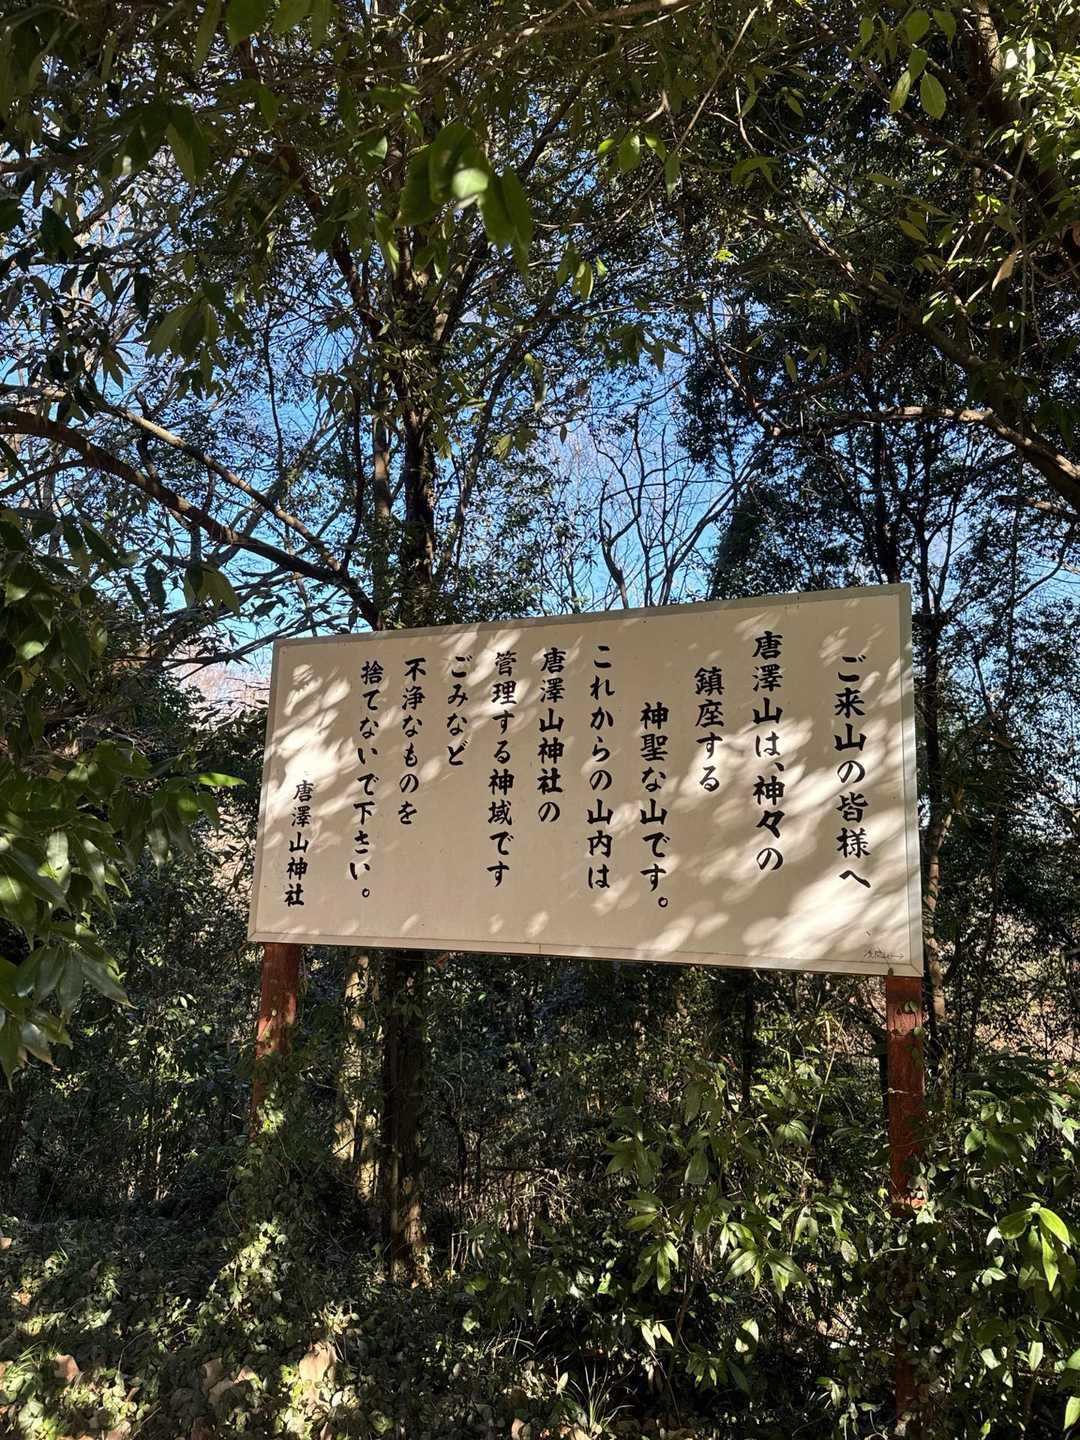 ご来山の皆様へ
唐澤山は、神々の
鎮座する
神聖な山です。
これからの山内は
唐澤山神社の
管理する神域です
ごみなど
不浄なものを
捨てないで下さい。
唐澤山神社